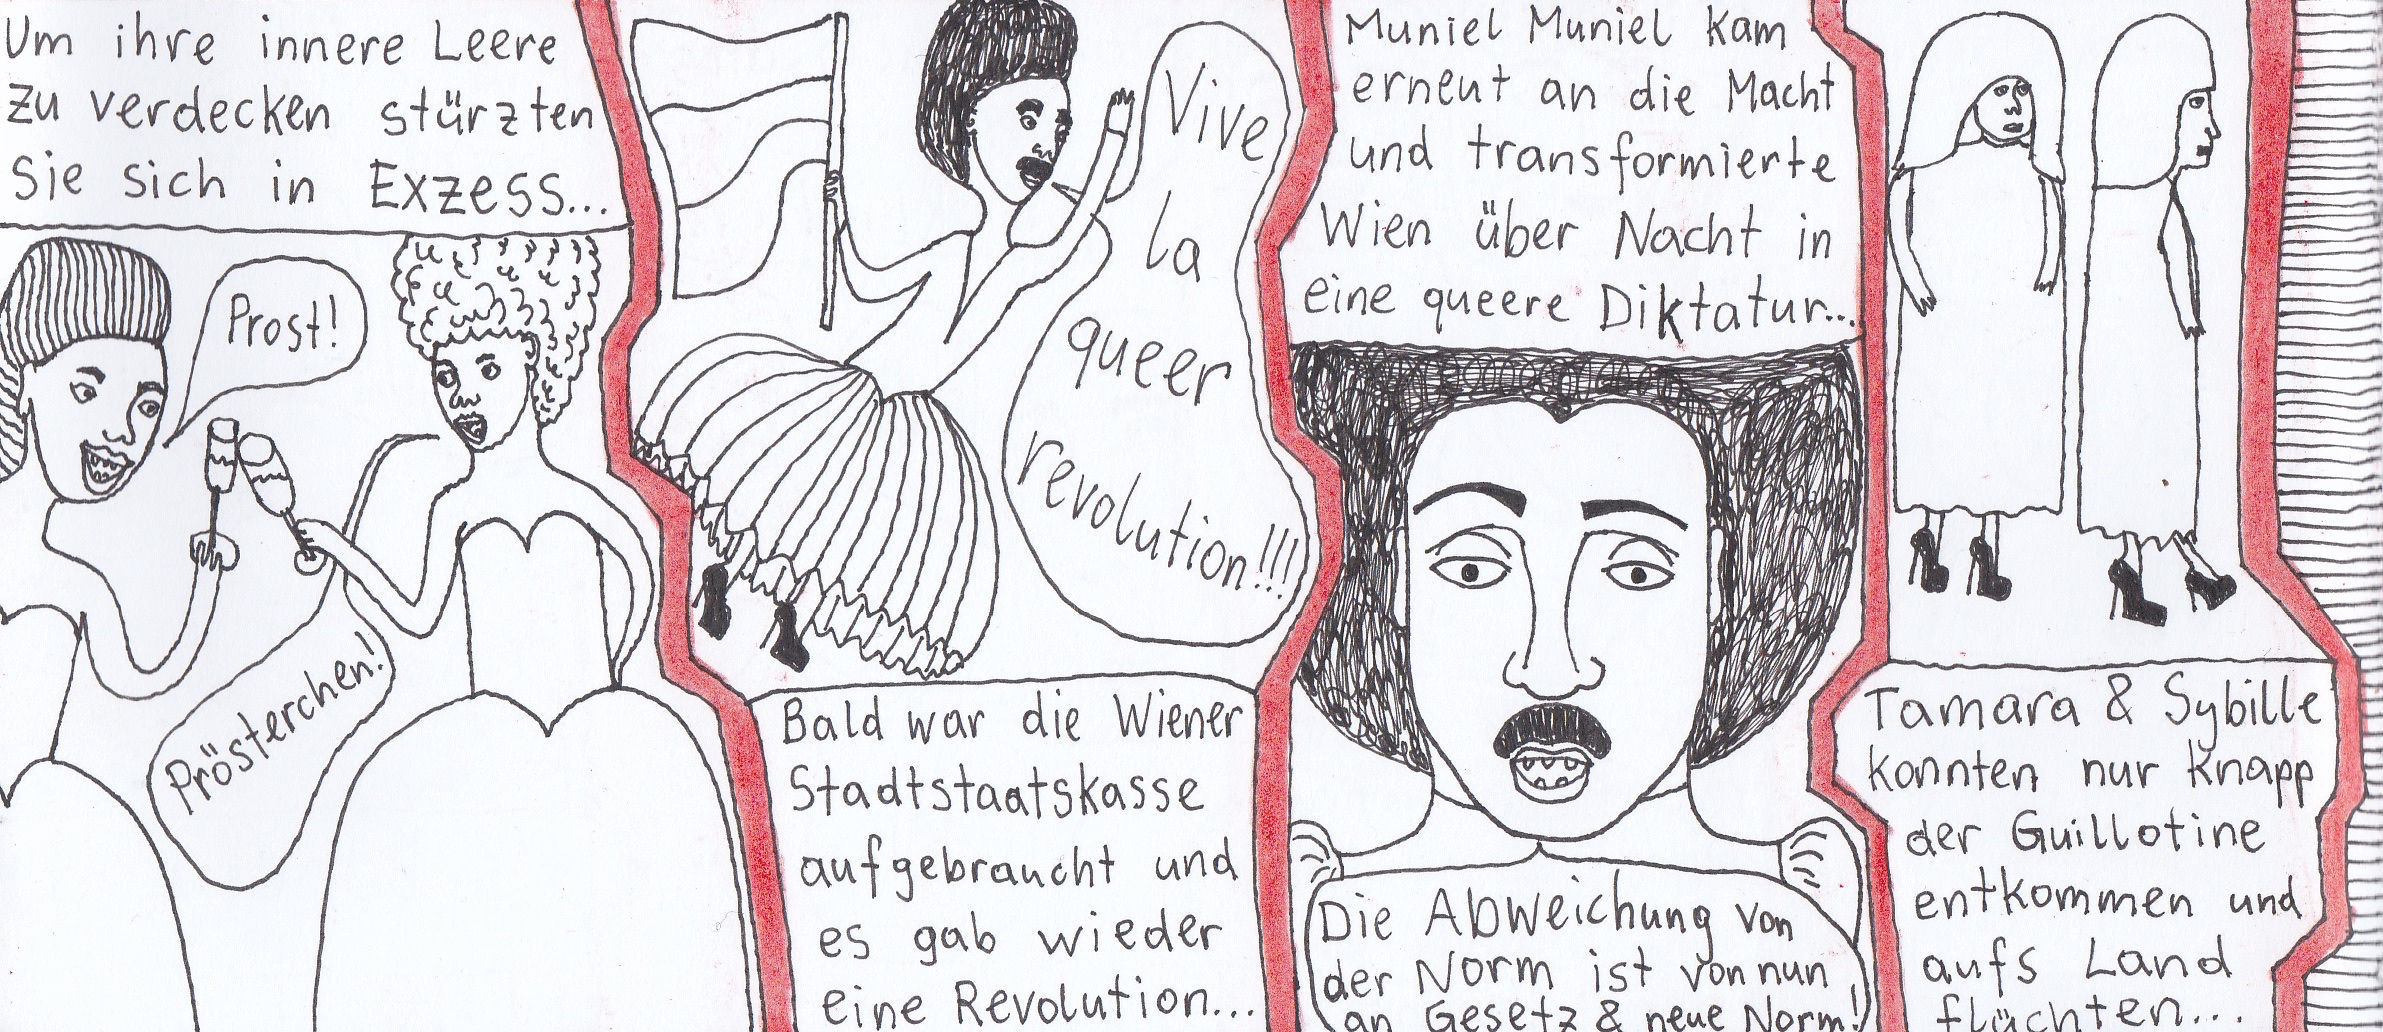 Um ihre innere Leere
zu verdecken stürzten
Sie sich in Exzess...
Prost!
Prösterchen!
Vive
la
queer
revolution!!!
Bald war die Wiener
Stadtstaatskasse
aufgebraucht und
es gab wieder
eine Revolution...
Muniel Muniel kam
erneut an die Macht
und transformierte
Wien über Nacht in
eine queere Diktatur...
Die Abweichung von
der Norm ist von nun
an Gesetz & neue Norm!
Tamara & Sybille
konnten nur knapp
der Guillotine
entkommen und
aufs Land
flüchten...